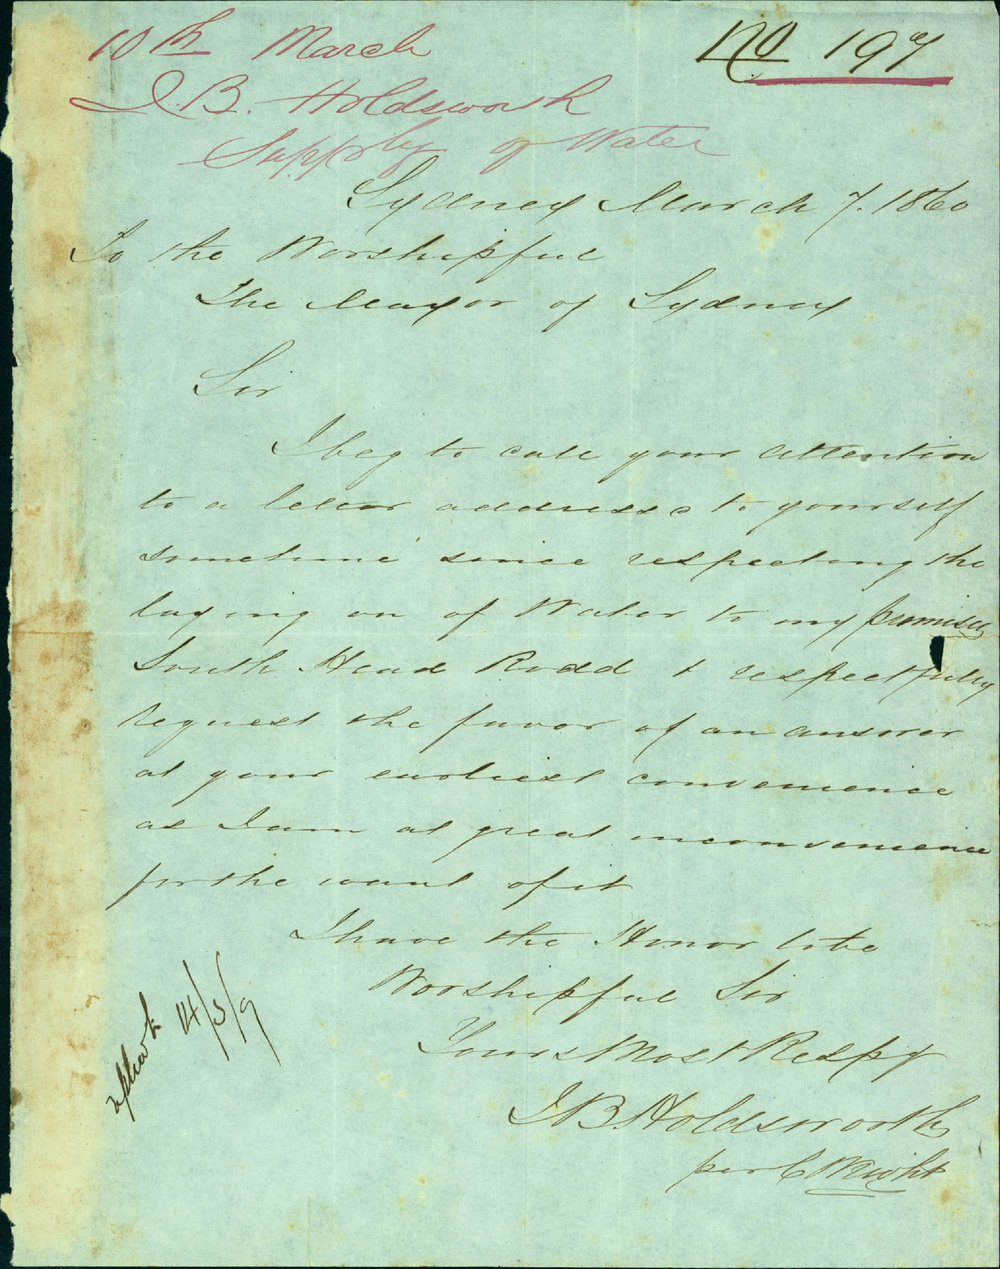 10th March
No 197
J.B. Holdsworth
Supply of Water
Sydney March 7. 1860
To the Worshipful
The Mayor of Sydney
Sir
I beg to call your attention
to a letter addressed to yourself
sometime since respecting the
laying on of Water to my premises
South Head Road & respectfully
request the favor of an answer
at your earliest convenience
as I am at great inconvenience
for the want of it
I have the Honor to be
Worshipful Sir
Yours Most Respy
J.B. Holdsworth
per C Wright
14/3/9